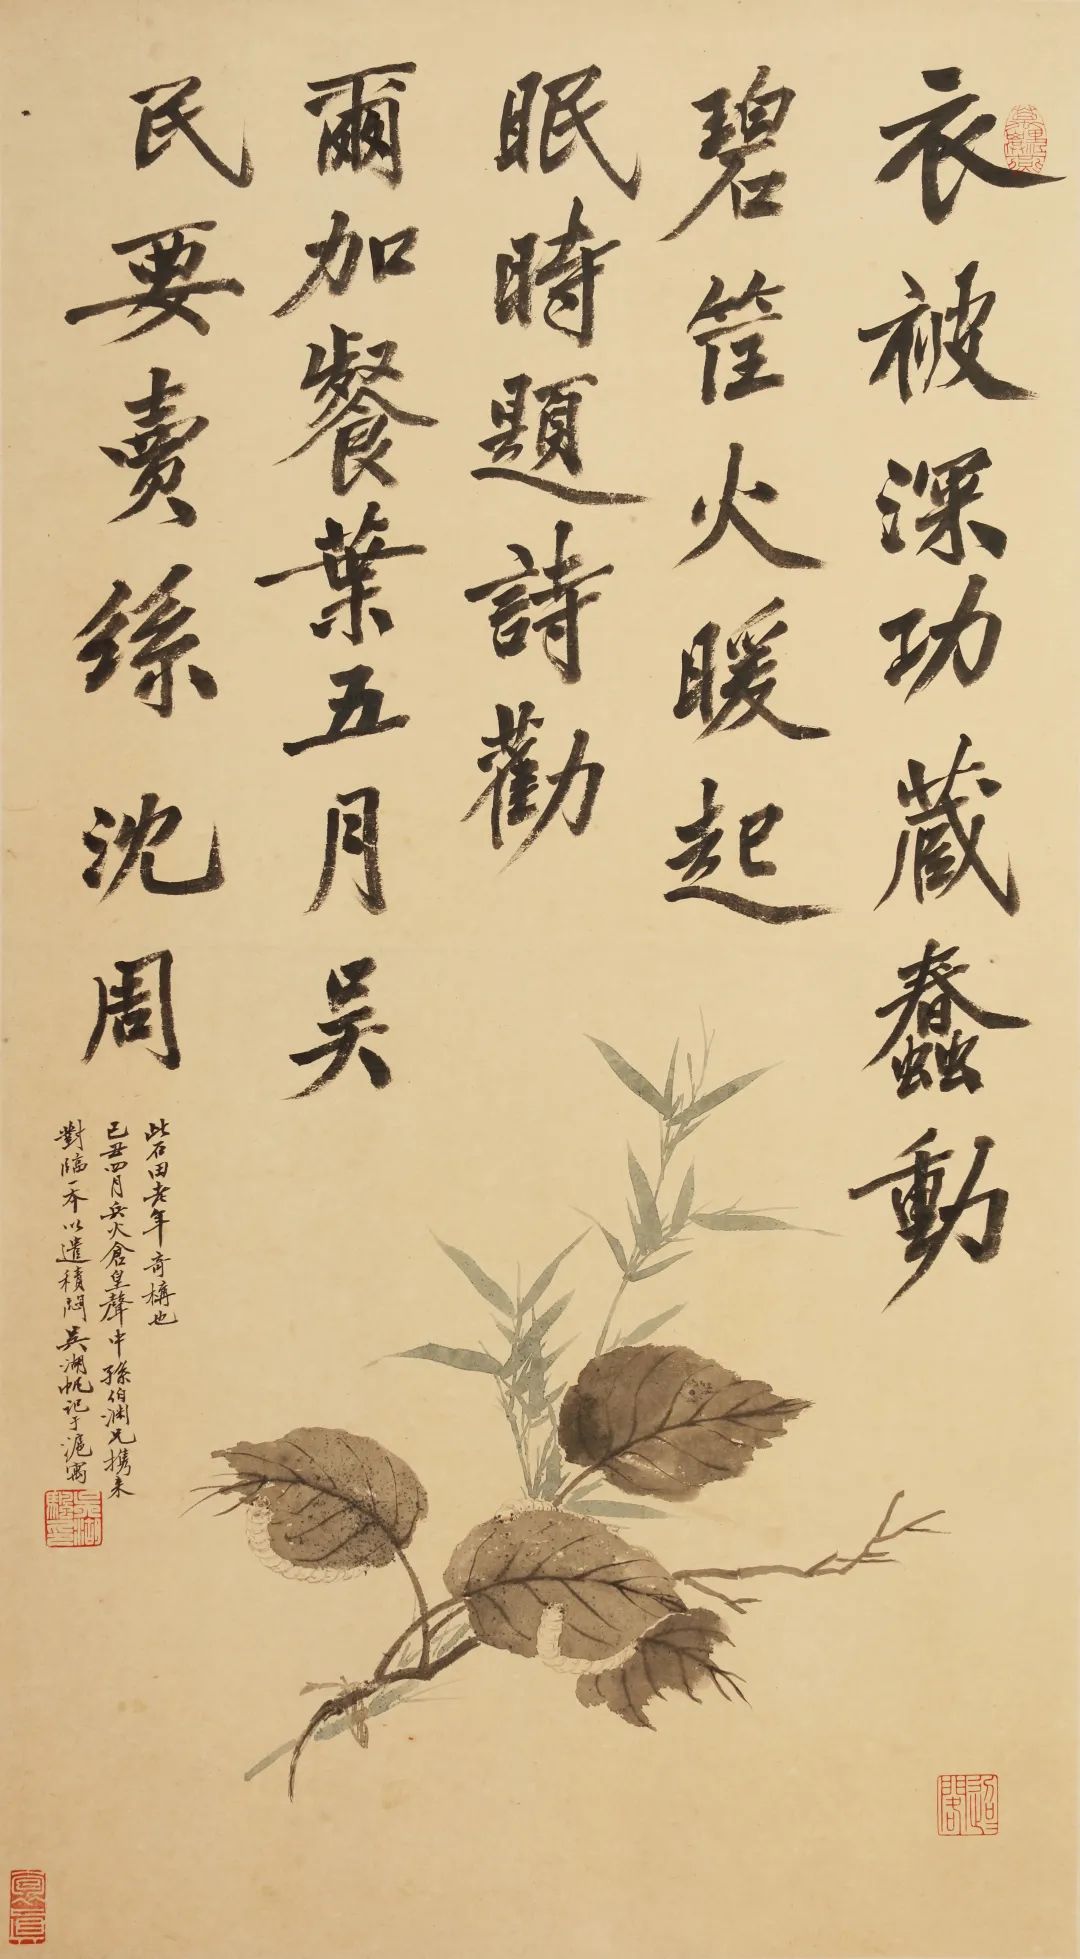 衣被深功藏蠢動
碧筐火暖起
眠時題詩勸
爾加餐葉五月吳
民要賣絲沈周
此石田老年奇構也
己丑四月兵火倉皇聲中孫伯淵兄攜来
對臨一本以遣積悶吳湖帆記于滬寓